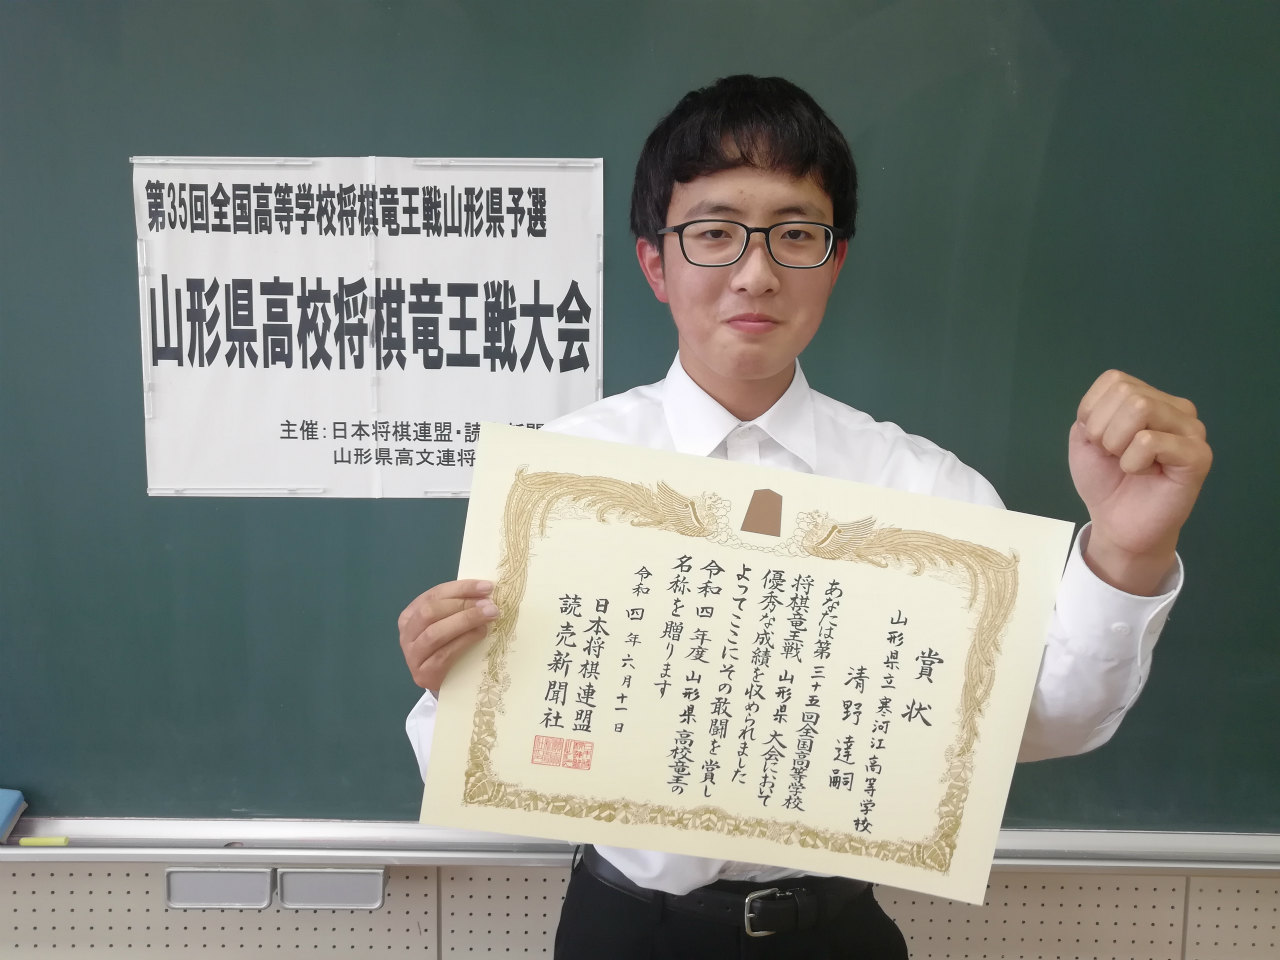 第35回全国高等学校将棋竜王戦山形県予選
山形県高校将棋竜王戦大会
主催:日本将棋連盟・読
山形県高文連将
賞状
山形県立寒河江高等学校
清野達嗣
あなたは第三十五回全国高等学校
将棋竜王戦山形県大会において
優秀な成績を収められました
よってここにその敢闘を賞し
令和四年度山形県高校竜王の
名称を贈ります
令和四年六月十一日
日本将棋連盟
読売新聞社